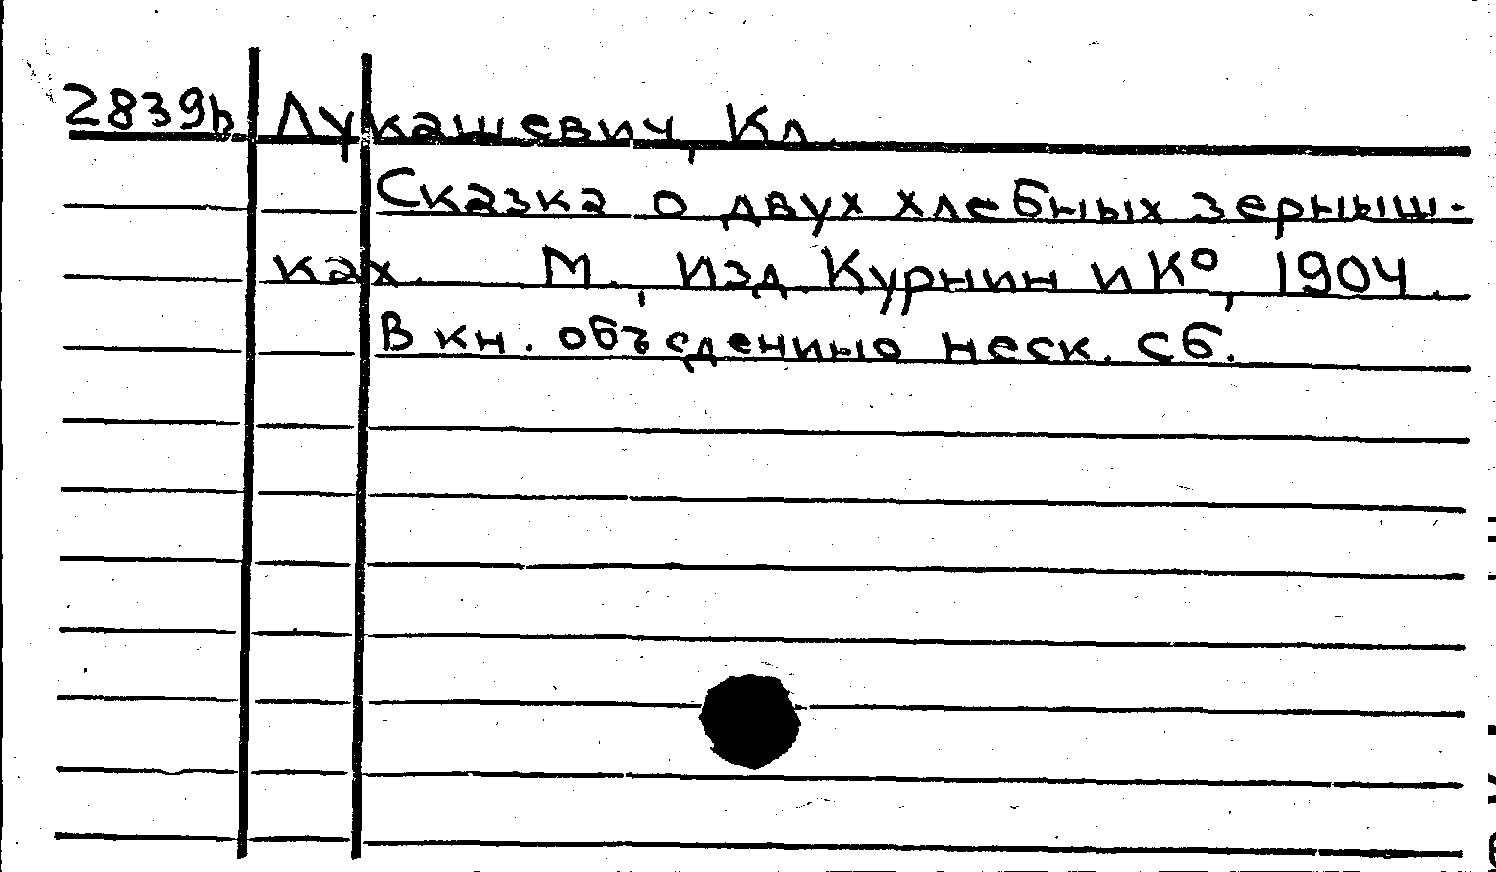 2839b Лукашевич, Кл.
Сказка о двух хлебных зерныш-
ках. М., Изд. Курнин и К°, 1904.
В кн. объедениню неск. сб.